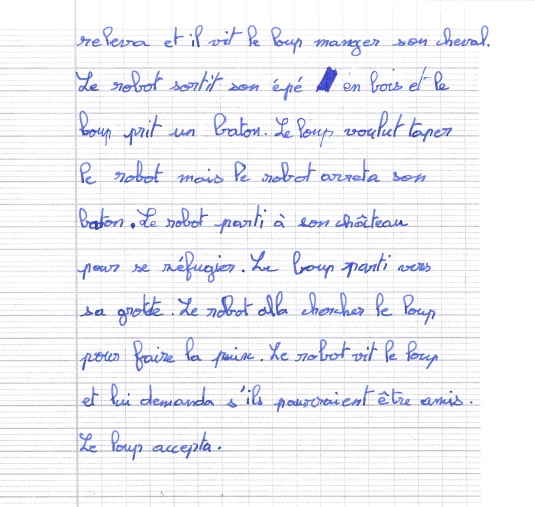 releva et il vit le loup manger son cheval.
Le robot sortit son épé en bois et le
loup prit un baton. Le loup voulut taper
le robot mais le robot arreta son
baton. Le robot parti à son château
pour se réfugier. Le loup parti vers
sa grotte. Le robot alla chercher le loup
pour faire la paix. Le robot vit le loup
et lui demanda s'ils pourraient être amis.
Le loup accepta.